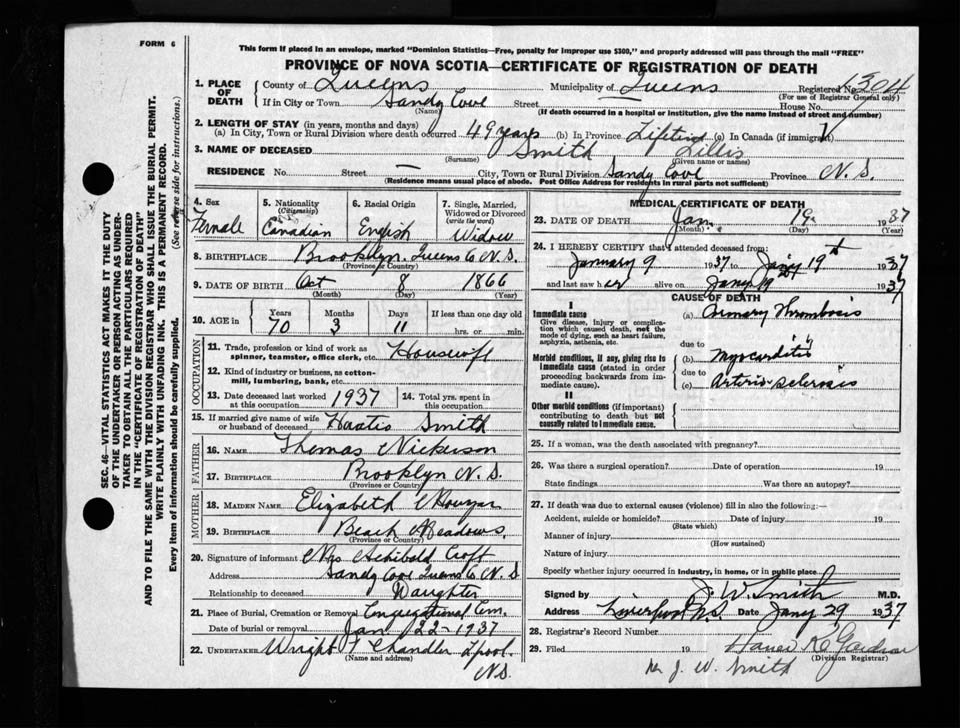 FORM 6
This form if placed in an envelope, marked "Dominion Statistics—Free, penalty for improper use $300," and properly addressed will pass through the mail "FREE"
PROVINCE OF NOVA SCOTIA—CERTIFICATE OF REGISTRATION OF DEATH
1. PLACE OF DEATH County of Queens Municipality of Queens Registered No. 1304
(For use of Registrar General only)
If in City or Town Sandy Cove Street House No.
(Name) (If death occurred in a hospital or institution, give the name instead of street and number)
2. LENGTH OF STAY (in years, months and days)
(a) In City, Town or Rural Division where death occurred 49 years (b) In Province Lifetime (c) In Canada (if immigrant)
3. NAME OF DECEASED Smith Lillis
(Surname) (Given name or names)
RESIDENCE No. — Street City, Town or Rural Division Sandy Cove Province N.S.
(Residence means usual place of abode. Post Office Address for residents in rural parts not sufficient)
4. Sex Female
5. Nationality (Citizenship) Canadian
6. Racial Origin English
7. Single, Married, Widowed or Divorced (write the word) Widow
8. BIRTHPLACE Brooklyn, Queens Co N.S.
(Province or Country)
9. DATE OF BIRTH Oct 8 1866
(Month) (Day) (Year)
10. AGE in Years 70 Months 3 Days 11 If less than one day old hrs. or min.
OCCUPATION
11. Trade, profession or kind of work as spinner, teamster, office clerk, etc. Housewife
12. Kind of industry or business, as cotton-mill, lumbering, bank, etc.
13. Date deceased last worked at this occupation 1937
14. Total yrs. spent in this occupation
15. If married give name of wife or husband of deceased Smith
FATHER
16. NAME Thomas Nickerson
17. BIRTHPLACE Brooklyn N.S.
(Province or Country)
MOTHER
18. MAIDEN NAME Elizabeth
19. BIRTHPLACE Beach Meadows
(Province or Country)
20. Signature of informant Mrs Archibald Croft
Address Sandy Cove Queens Co N.S
Relationship to deceased Daughter
21. Place of Burial, Cremation or Removal Congregational Cem.
Date of burial or removal Jan 22-1937
22. UNDERTAKER Wright & Chandler L'pool.
(Name and address) N.S.
MEDICAL CERTIFICATE OF DEATH
23. DATE OF DEATH Jan. 19 1937
(Month) (Day) (Year)
24. I HEREBY CERTIFY that I attended deceased from:
January 9 1937 to Jan'y 19th 1937
and last saw her alive on Jany 19th 1937
CAUSE OF DEATH
I
Immediate cause
Give disease, injury, or complication which caused death, not the mode of dying, such as heart failure, asphyxia, asthenia, etc.
(a) Coronary Thrombosis
due to
Morbid conditions, if any, giving rise to immediate cause (stated in order proceeding backwards from immediate cause).
(b) Myocarditis
due to
(c) Arterio sclerosis
II
Other morbid conditions (if important) contributing to death but not causally related to immediate cause.
25. If a woman, was the death associated with pregnancy?
26. Was there a surgical operation? Date of operation 19
State findings Was there an autopsy?
27. If death was due to external causes (violence) fill in also the following:—
Accident, suicide or homicide? Date of injury 19
(State which)
Manner of injury
(How sustained)
Nature of injury
Specify whether injury occurred in industry, in home, or in public place
Signed by J. W. Smith M.D.
Address Liverpool N.S. Date Jany 29 1937
28. Registrar's Record Number
29. Filed 19
(Division Registrar)
per J. W. Smith
SEC. 46—VITAL STATISTICS ACT MAKES IT THE DUTY
OF THE UNDERTAKER OR PERSON ACTING AS UNDER-
TAKER TO OBTAIN ALL THE PARTICULARS REQUIRED
IN THE "CERTIFICATE OF REGISTRATION OF DEATH"
AND TO FILE THE SAME WITH THE DIVISION REGISTRAR WHO SHALL ISSUE THE BURIAL PERMIT.
WRITE PLAINLY WITH UNFADING INK. THIS IS A PERMANENT RECORD.
Every item of information should be carefully supplied. (See reverse side for instructions.)